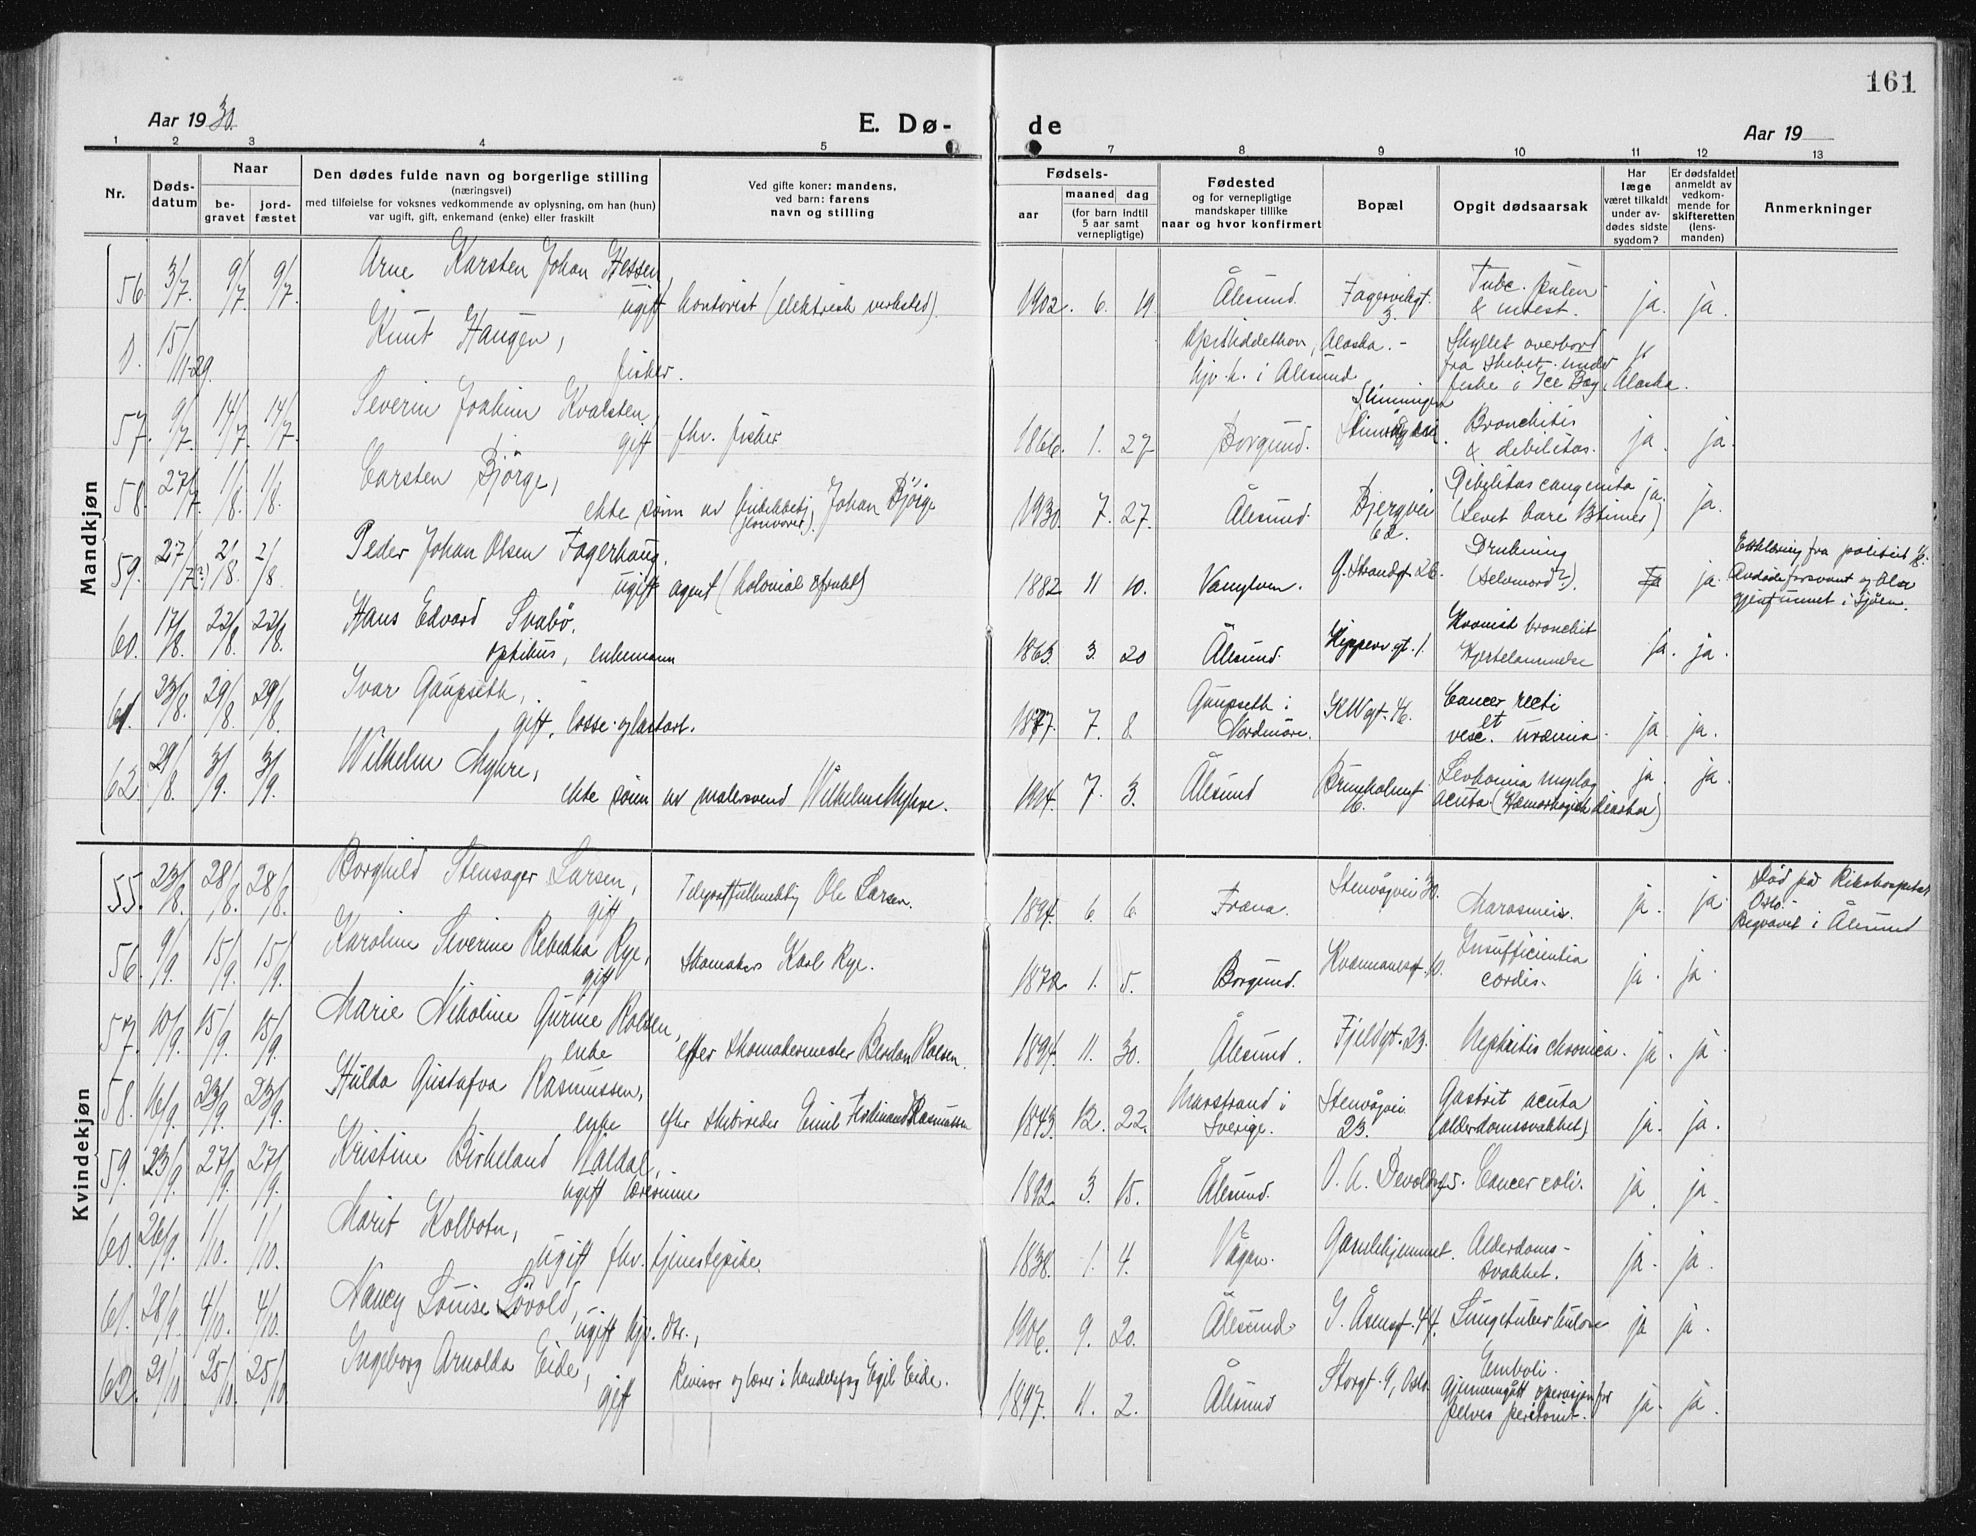 161
Aar 1930
E. Dø- de
Aar 19
1 2 3 4 5 7 8 9 10 11 12 13
Nr.
Døds-
datum
Naar
be-
gravet
jord-
fæstet
Den dødes fulde navn og borgerlige stilling
(næringsvei)
med tilføielse for voksnes vedkommende av oplysning, om han (hun)
var ugift, gift, enkemand (enke) eller fraskilt
Ved gifte koner: mandens,
ved barn: farens
navn og stilling
Fødsels-
aar
maaned dag
(for barn indtil
5 aar samt
vernepligtige)
Fødested
og for vernepligtige
mandskaper tillike
naar og hvor konfirmert
Bopæl
Opgit dødsaarsak
Har
læge
været tilkaldt
under av-
dødes sidste
sygdom?
Er dødsfaldet
anmeldt av
vedkom-
mende for
skifteretten
(lens-
manden)
Anmerkninger
Mandkjøn
56. 3/7. 9/7. 9/7. Arne Karsten Johan Hessen,
ugift kontorist (elektrisk verksted). 1902. 6. 19. Ålesund. Fagervikgt. 3. Tubc. pulm & intest. ja. ja.
0. 15/11-29. Knut Haugen,
fisker. Alaska. Skyllet overbord
hjv. h. i Ålesund fra skibet under
fiske i Ice Bay, Alaska.
57. 9/7. 14/7. 14/7. Severin Joakim Kvalsten,
gift fhv. fisker 1866. 1. 27. Borgund. Bronchitis
& debilitas. ja. ja.
58. 27/7. 1/8. 1/8. Carsten Bjørge,
ekte sønn av Johan Bjørge 1930. 7. 27. Ålesund. Bjergvei
62. Debilitas congenita
(Levet bare 13 timer) ja. ja.
59. 27/7(?) 2/8. 2/8. Peder Johan Olsen Fagerhaug,
ugift agent (kolonial & frukt) 1882 11 10. Vanylven. Ø. Strandgt. 26. Drukning
(selvmord?). ja.
Erklæring fra politiet
gjenfunnet i sjøen.
60. 17/8. 22/8. 22/8. Hans Edvard Svabø,
optikus, enkemann 1863. 3. 20 Ålesund. Kippervgt. 1. Kronisk bronchit
Hjertelammelse ja. ja.
61. 23/8. 29/8. 29/8. Ivar Gaupseth,
gift, losse- og lastearb. 1877. 7. 8. Gaupseth i
Nordmøre. KWgt. 46. Cancer recti
et
vesc. uræmia. ja. ja.
62. 29/8. 3/9. 3/9. Wilhelm Myhre,
ekte sønn av malersvend Wilhelm Myhre. 1914. 7. 3. Ålesund Brunholmgt. ja. ja.
acuta
Kvindekjøn
55. 23/8. 28/8. 28/8. Borghild Stensager Larsen,
gift Ole Larsen. 1894. 6 6. Fræna. Stenvågvei 30. Marasmus. ja. ja. Død på Rikshospitalet
Oslo.
Begravet i Ålesund
56. 9/9. 15/9. 15/9. Karoline Severine Rebekka Rye,
gift Skomaker Karl Rye. 1872. 1. 5. Borgund. Insufficientia
cordis. ja. ja.
57. 10/9. 15/9. 15/9. Marie Nikoline Gurine Rolsen,
enke efter skomakermester Berdon Rolsen. 1894. 11. 30. Ålesund. Fjeldgt. 23. Nephritis chronica. ja. ja.
58. 16/9. 23/9. 23/9. Hulda Gustafva Rasmussen,
enke efter skibsreder Emil Ferdinand Rasmussen 1843. 12. 22. Marstrand i
Sverige. Stenvågvei
23. Gastrit acuta
(alderdomssvakhet) ja. ja.
59. 23/9. 27/9. 27/9. Kristine Birkeland Valdal,
ugift lærerinne 1892 3. 15. Ålesund. O. A. Devoldsgt 5. Cancer coli. ja. ja.
60. 26/9. 1/10. 1/10. Marit Kolbotn,
ugift fhv. tjenestepike. 1838. 1. 4. Vågan. Gamlehjemmet. Alderdoms-
svakhet. ja. ja.
61. 28/9. 4/10. 4/10. Nancy Louise Løvold,
ugift hjv. dtr., 1906. 9. 20. Ålesund. I. Åsensgt. 44. Lungetuberkulose ja ja.
62. 21/10 25/10. 25/10 Ingeborg Arnolda Eide,
gift Revisor og lærer i handelsfag Egil Eide. 1897. 11. 2. Ålesund Storgt. 9, Oslo. Emboli.
Gjennemgått operasjon for
pelveo peritonit. ja. ja.